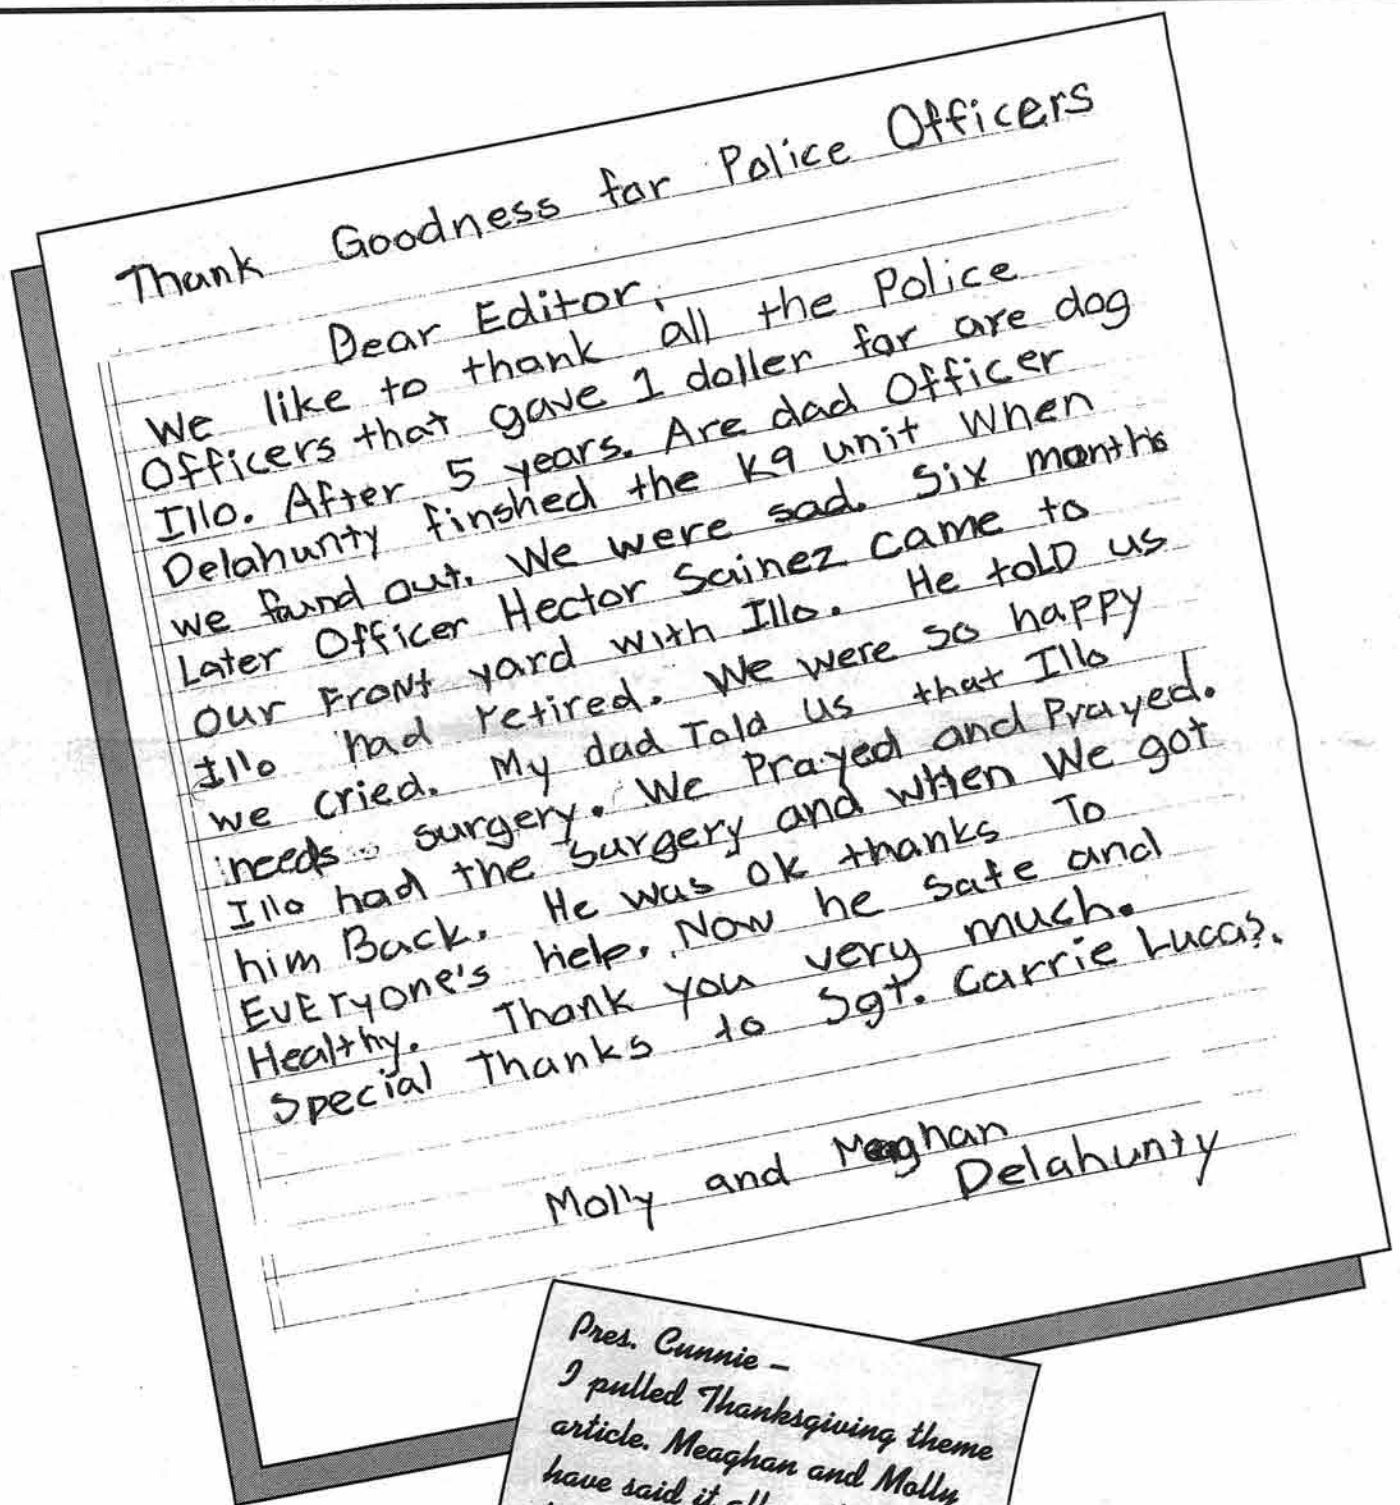 Thank Goodness for Police Officers
Dear Editor,
We like to thank all the Police
Officers that gave 1 doller for are dog
Illo. After 5 years. Are dad Officer
Delahunty finshed the K9 unit When
we found out. We were sad. Six months
Later Officer Hector Sainez came to
our Front yard with Illo. He tolD us
Illo had retired. We were so happy
we cried. My dad Told us that Illo
needs surgery. We Prayed and Prayed.
Illo had the Surgery and wHen We got
him Back. He was ok thanks To
EvERyone's help. Now he safe and
Healthy. Thank you very much.
Special Thanks to Sgt. Carrie Lucas.
Molly and Meaghan
Delahunty
Pres. Cunnie –
I pulled Thanksgiving theme
article. Meaghan and Molly
have said it all